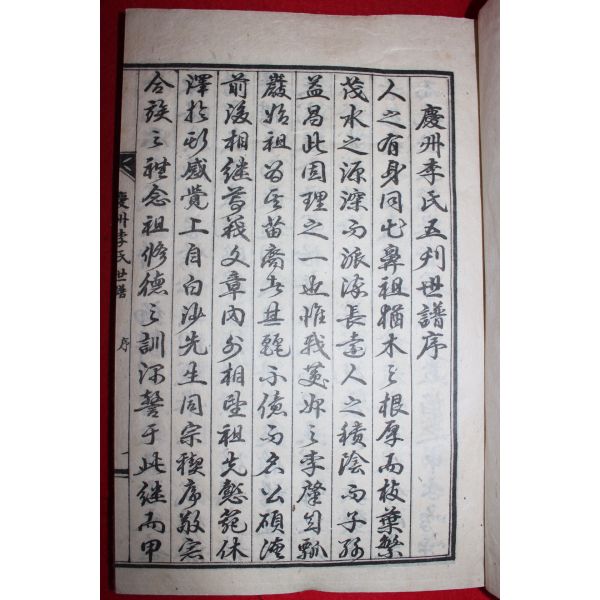 慶州李氏五刋世譜序
人之有身同出鼻祖猶木之根厚而枝葉繁
茂水之源深而派流長遠人之積陰而子孫
益昌此固理之一也惟我之李肇自瓢
巖始祖爲其苗裔者其麗不億而名公碩
前後相繼文章內外相望祖先懿範休
澤於斯感覺上自白沙先生同宗稧序敬宗
合族之禮念祖修德之訓深警于此繼而甲
慶州李氏世譜 序 一